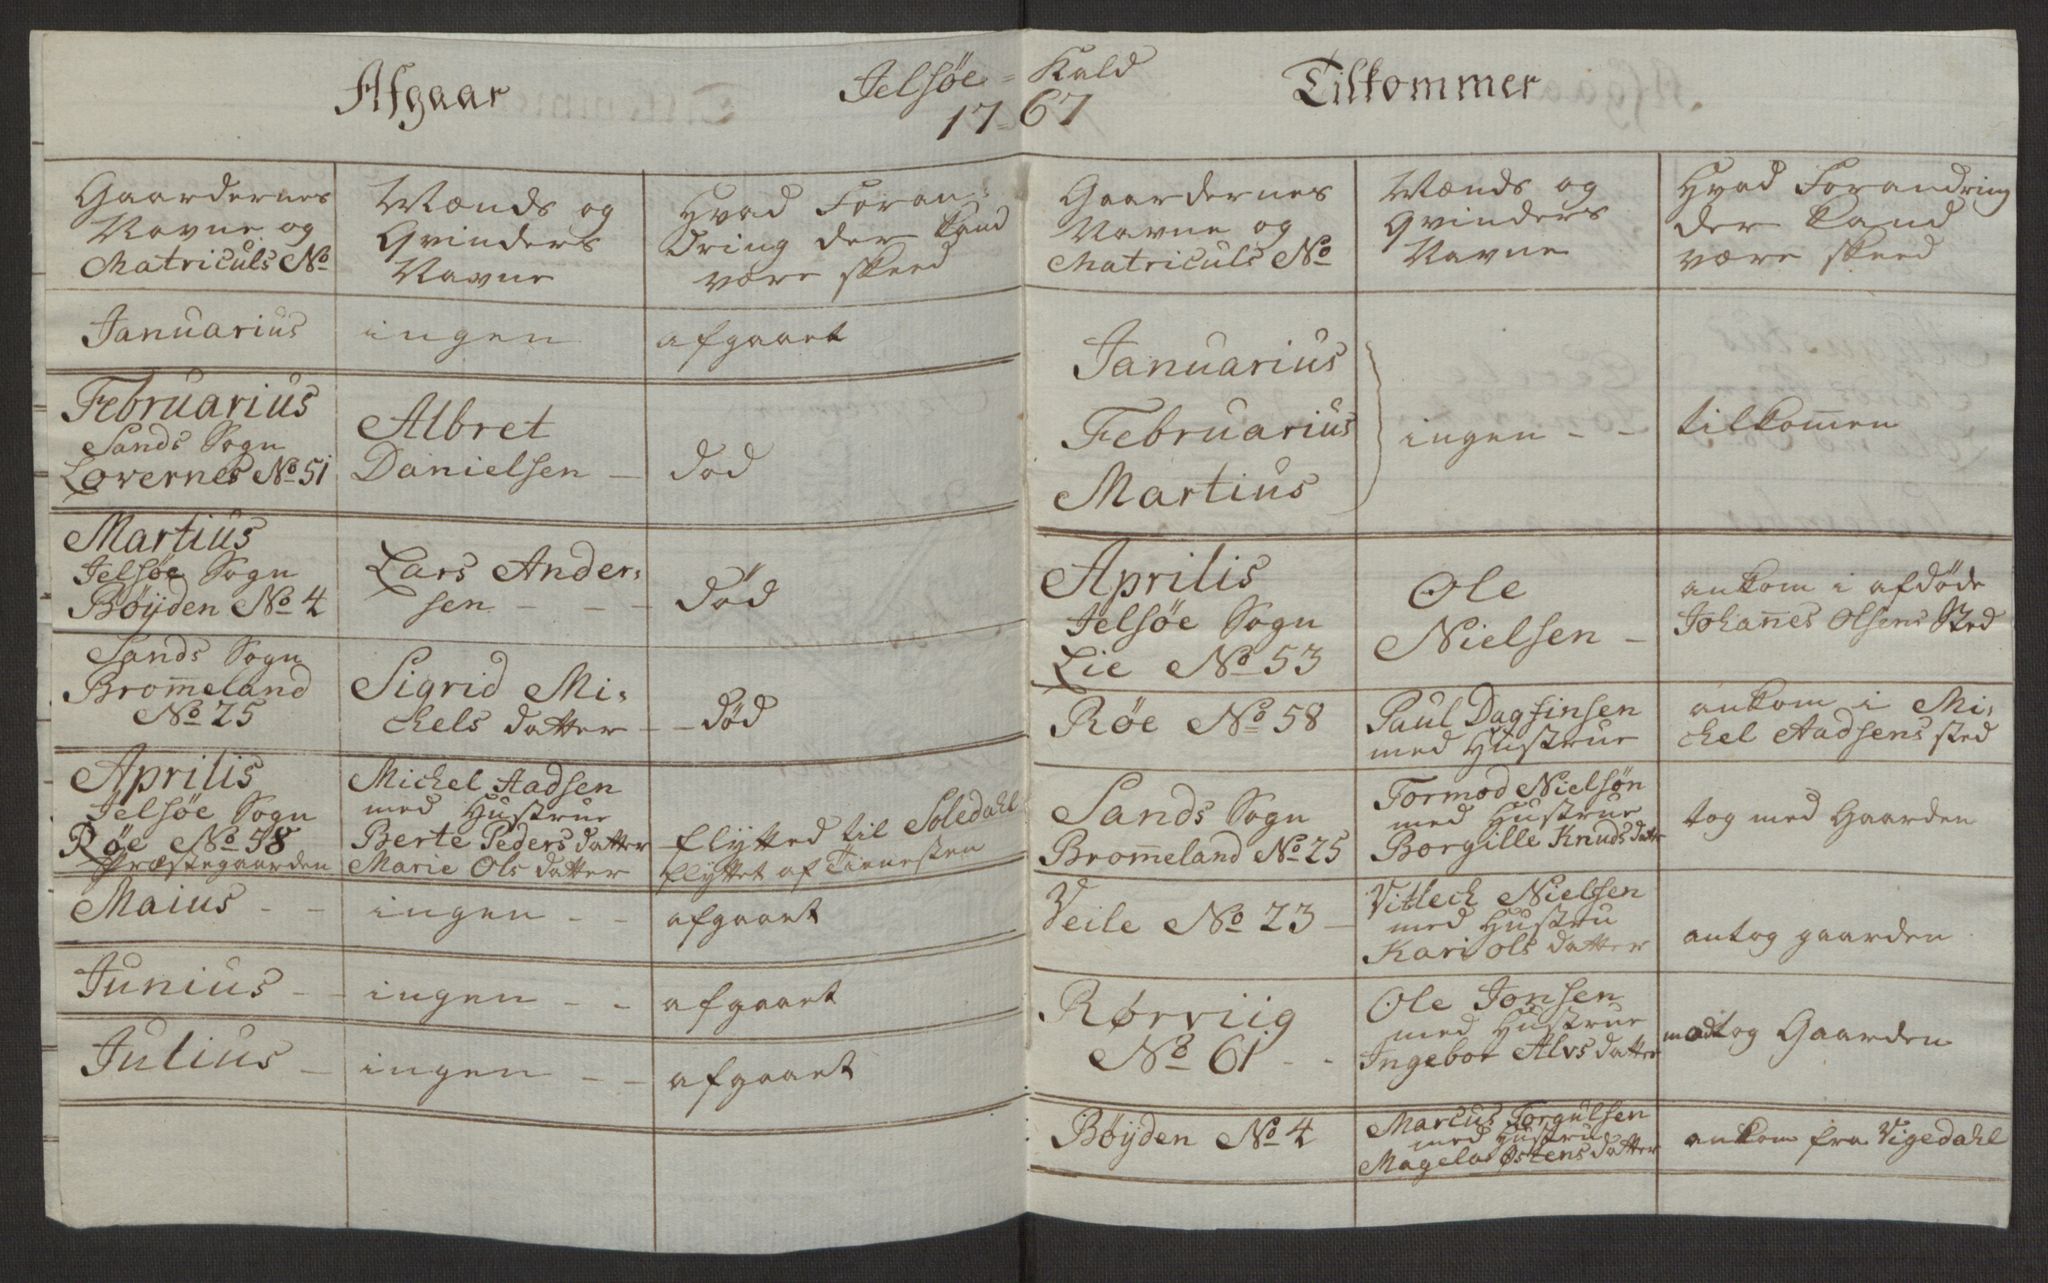 Afgaar
Jelsøe - Kald
Tilkommer
17 67
Gaardernes
Navne og
Matriculs No
Mænds og
Qvinders
Navne
Hvad Foran-
dring der kand
være skeed
Januarius ingen afgaaet
Februarius
Sands Sogn
Lovernes No 51
Albret
Danielsen -
død
Martius
Jelsøe Sogn
Böÿden No 4
Lars Ander-
sen - - -
død
Sands Sogn
Brom̄eland
No 25
Sigrid Mi-
chels datter -
- død
Aprilis
Jelsøe Sogn
Røe No 58
Præstegaarden
Michel Aadsen
med Hustrue
Berte Peders datter
Marie Ols datter
flytted til Soledahl
flyttet af Tienesten
Maius - - ingen - - afgaaet
Junius - - ingen - - afgaaet
Julius - ingen - - afgaaet
Gaardernes
Navne og
Matriculs No
Mænds og
Qvinders
Navne
Hvad Forandring
der kand
være skeed
Januarius
Februarius
Martius
ingen - -
tilkom̄en
Aprilis
Jelsøe Sogn
Lie No 53
Ole
Nielsen -
ankom i afdøde
Johan̄es Olsens Sted
Røe No 58
Paul Dagfinsen
med Hustrue
ankom i Mi-
chel Aadsens sted
Sands Sogn
Brom̄eland No 25
Tormod Nielsøn
med Hustrue
Borgille Knudsdatter
tog med Gaarden
Veile No 23 -
Vitlech Nielsen
med Hustru
Kari Ols datter
antog gaarden
Rørviig
No 61 - -
Ole Jonsen
med Hustrue
Ingebor Alvs datter
modtog Gaarden
Böÿden No 4
Marcus Torgulsen
med Hustru
Magela Østensdatter
ankom fra Vigedahl